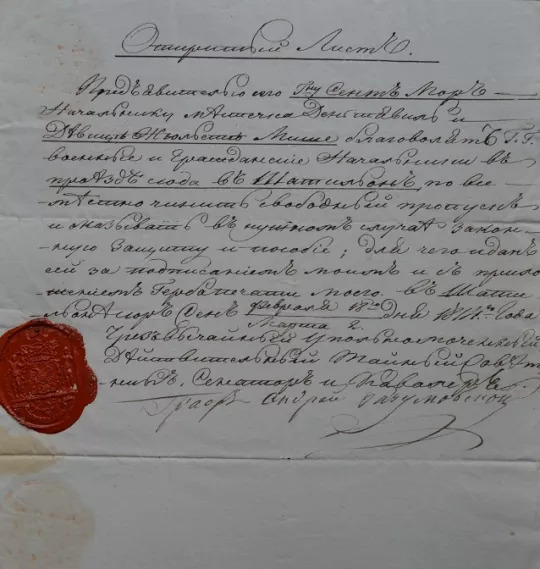 Открытый Листъ.
Предъявителю сего Г-ну Сентъ Моръ
Начальнику мѣстечка и
Дѣвицѣ Жюльетъ Мише благоволятъ Г.Г.
военные и Гражданскіе Начальники въ
проѣздѣ сюда въ Шатильонъ по все-
мѣстно чинить свободный пропускъ
и оказывать въ нужномъ случаѣ закон-
ную защиту и пособіе; для чего и данъ
сей за подписаніемъ моимъ и съ прило-
женіемъ Герба печати моего. въ Шати-
льонѣ Сенѣ Февраля 18го дня 1814го Года
Марта 2.
Чрезвычайный Уполномоченный
Дѣйствительный Тайный Совѣт-
никъ, Сенаторъ и Кавалеръ
Графъ Андрей Разумовской